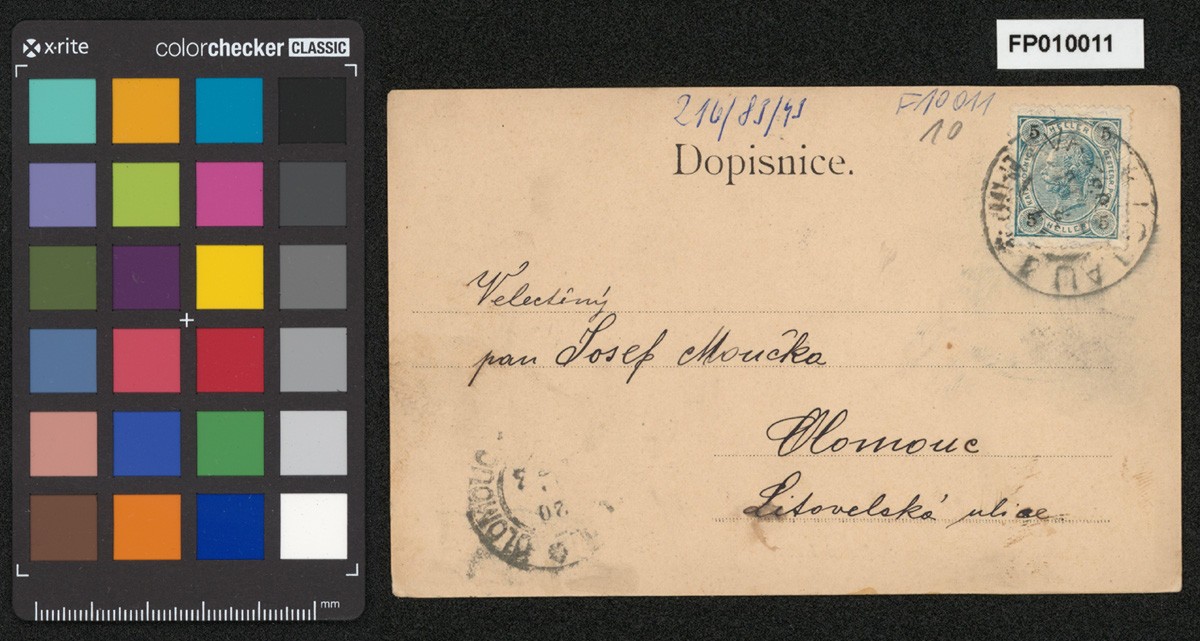 x·rite
colorchecker CLASSIC
mm
FP010011
216/83/43
F10011
10
Dopisnice.
5 HELLER 5
5 HELLER 5
Velectěný
pan Josef Moučka
Olomouc
Litovelská ulice
OLOMOUC
20